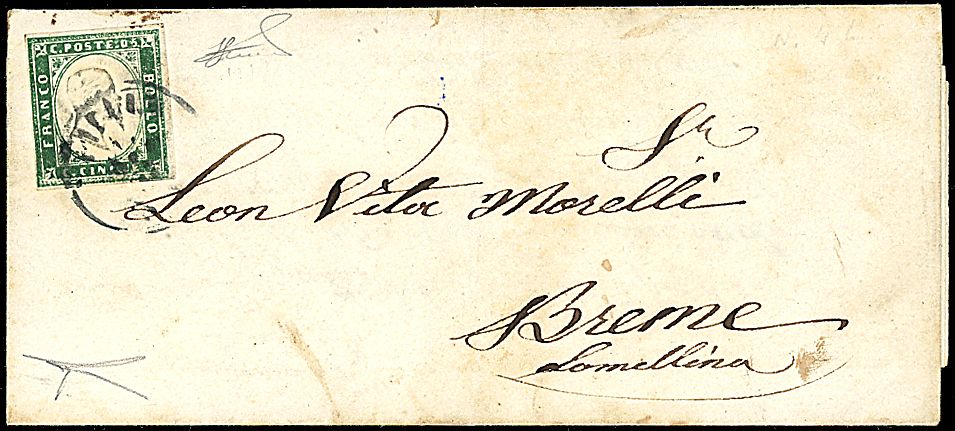 C. POSTE. 05
FRANCO
BOLLO
Sr
Leon Vita Morelli
Breme
Lomellina